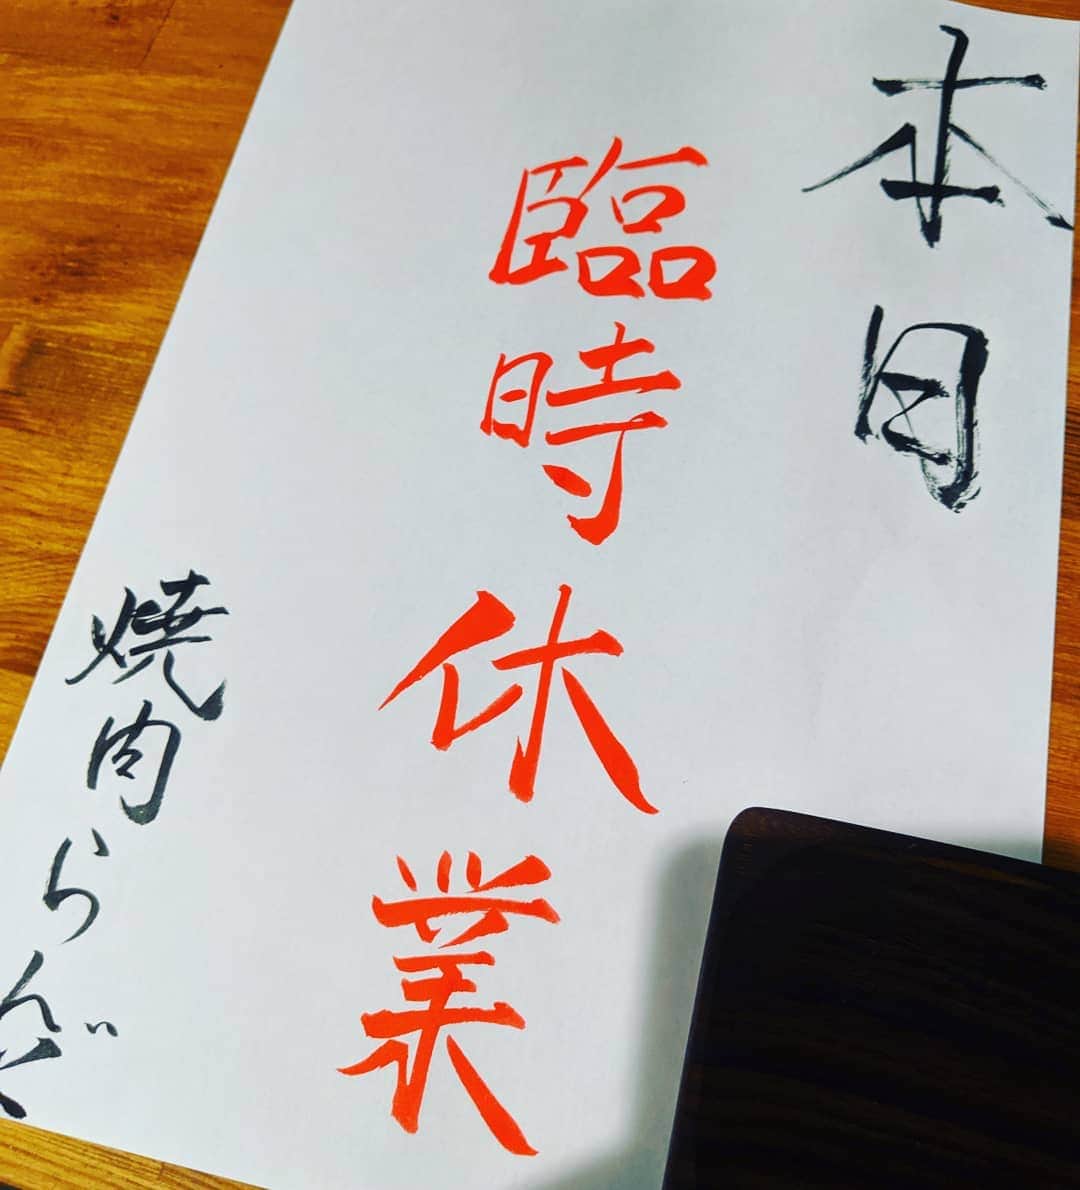 本日
臨時休業
焼肉らんぷ